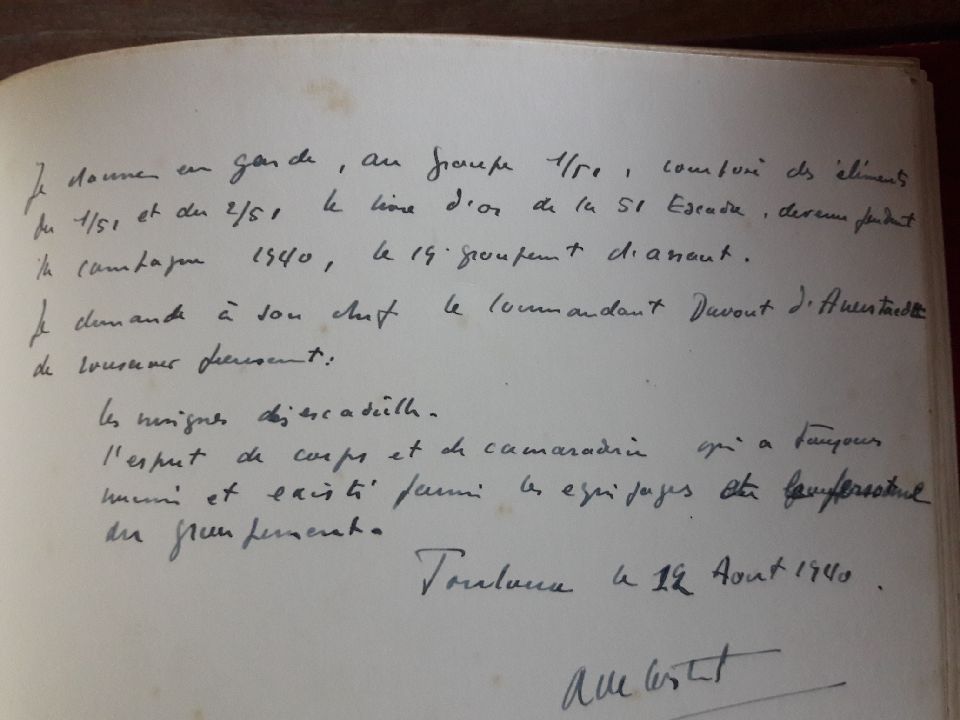 Je donne en garde, au groupe 1/51, composé des éléments
du 1/51 et du 2/51 le livre d'or de la 51 Escadre, devenue pendant
la campagne 1940, le 19 groupement d'assaut.
Je demande à son chef le Commandant Davout d'Auerstaedt
de conserver
les insignes des escadrilles.
l'esprit de corps et de camaraderie qui a toujours
et existé parmi les equipages et le personnel
du groupement.
Toulouse le 12 Aout 1940.